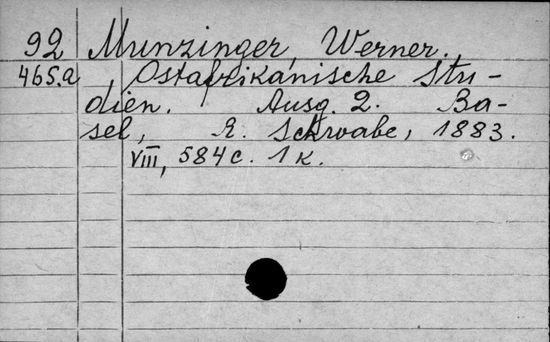 92 Munzinger, Werner.
465.a Ostafrikanische Stu-
dien. Ausg. 2. Ba-
sel, E. Schwabe, 1883.
VIII, 584 c. 1 к.